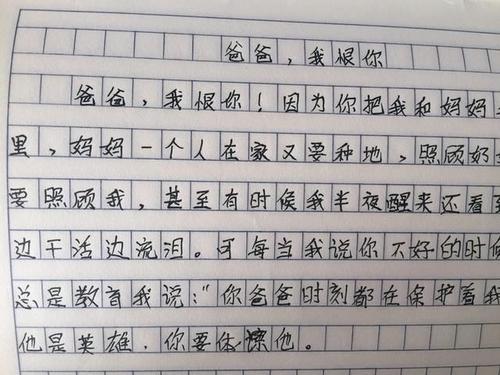 爸爸，我恨你
爸爸，我恨你！因为你把我和妈妈
里，妈妈一个人在家又要种地，照顾奶
要照顾我，甚至有时候我半夜醒来还看
边干活边流泪。可每当我说你不好的时候
总是教育我说："你爸爸时刻都在保护着我
他是英雄．你要体谅他。